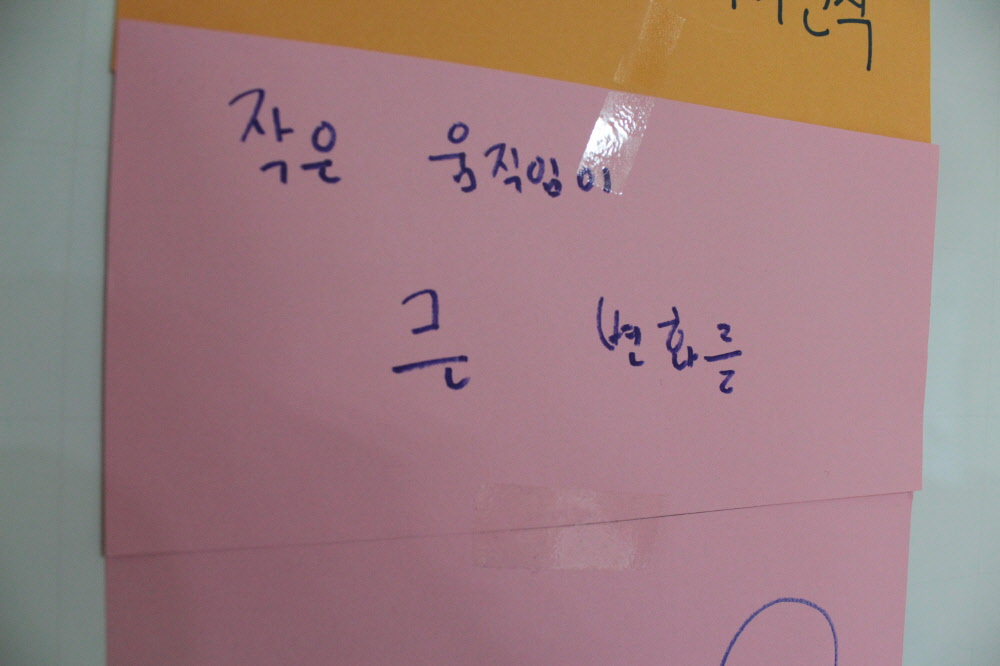 작은 움직임이
큰 변화를